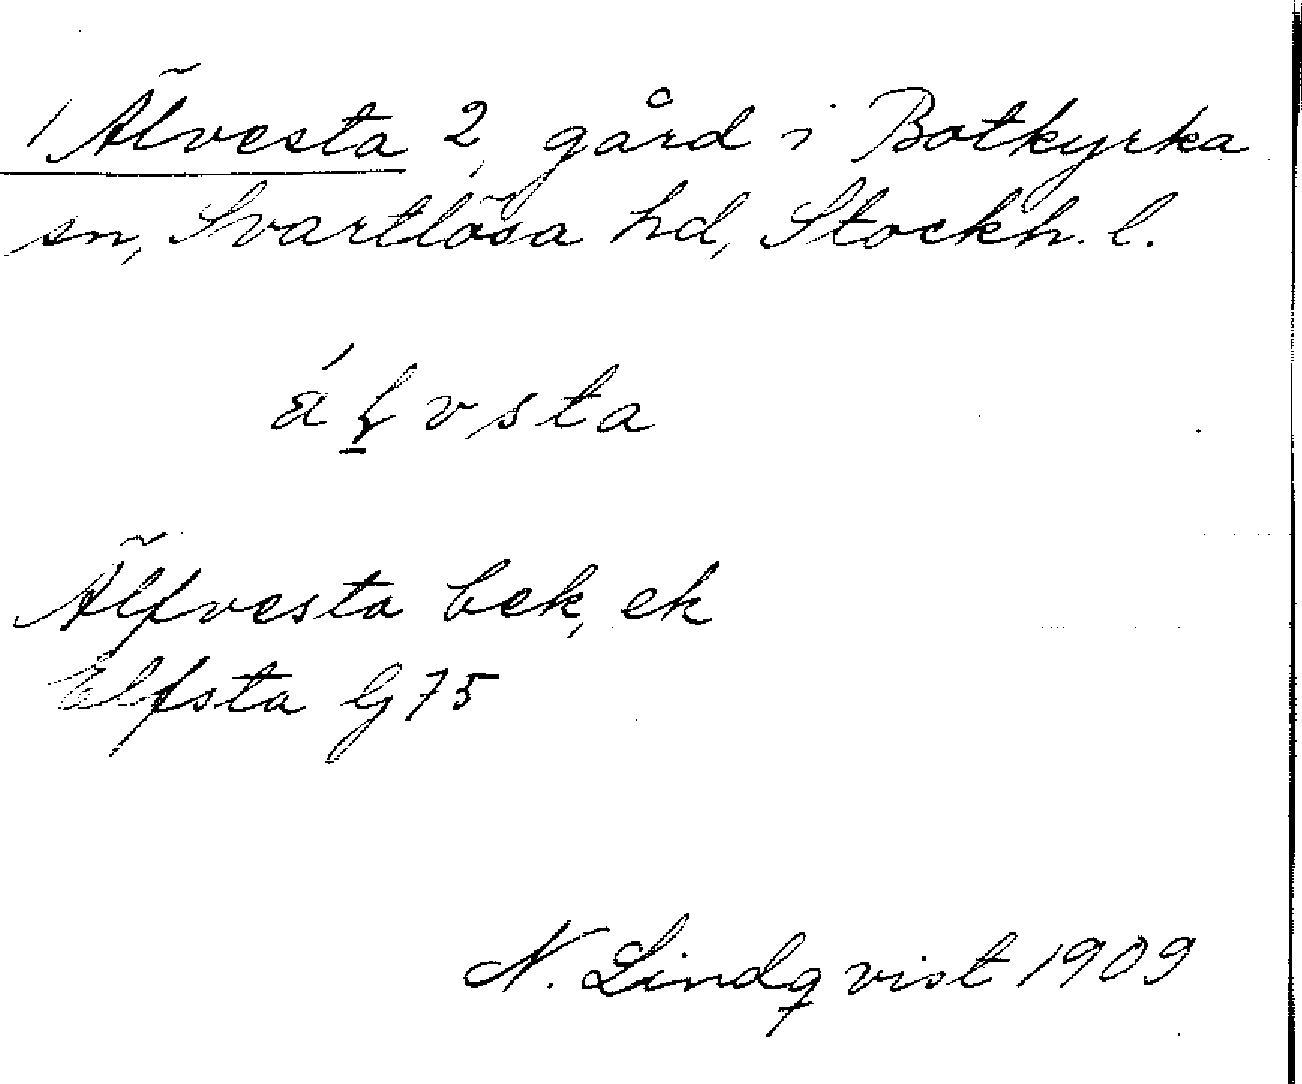 1 Älvesta 2, gård i Botkyrka
sn, Svartlösa hd, Stockh. l.
Älfvesta bek, ek
Elfsta G 75
N. Lindqvist 1909